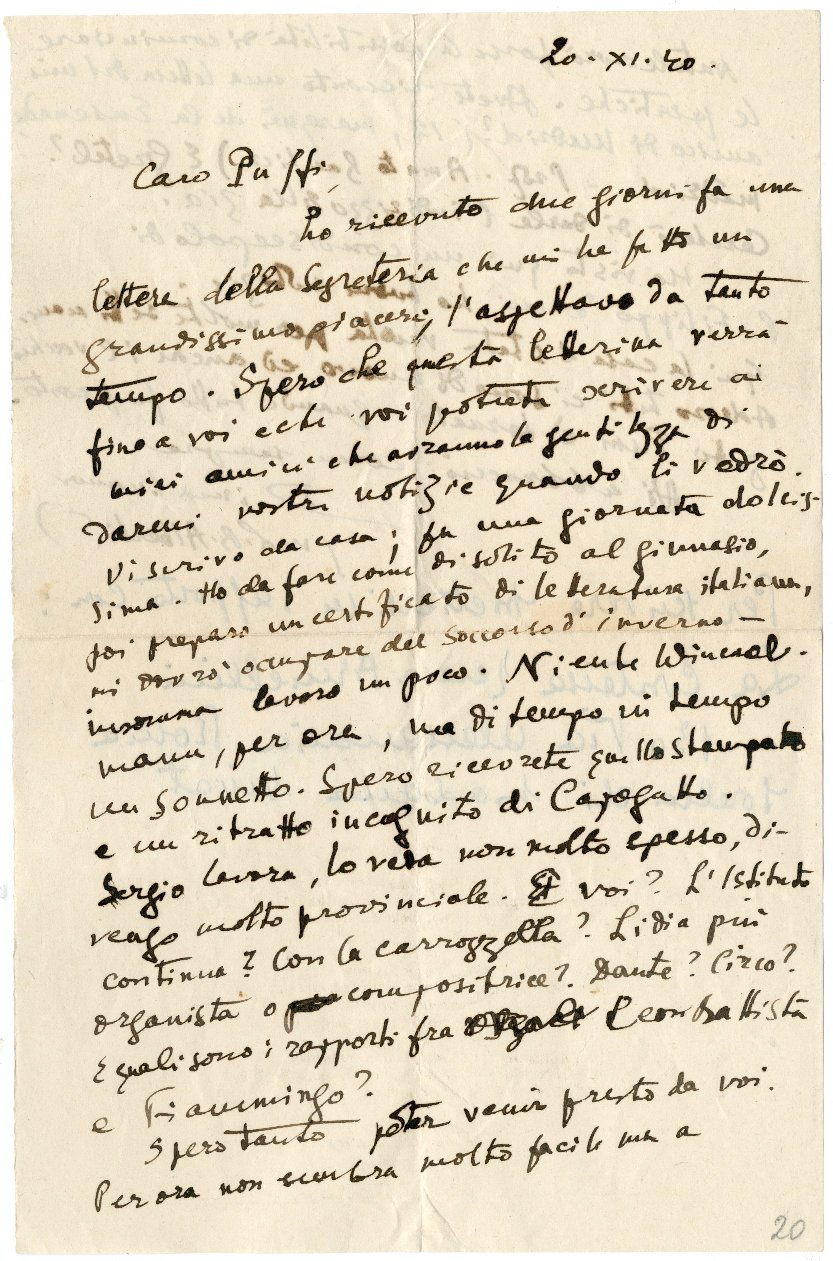 20. XI. 40.
Caro Puffi,
ho ricevuto due giorni fa una
lettera della Segreteria che mi ha fatto un
grandissimo piacere, l'aspettavo da tanto
tempo. Spero che questa letterina verrà
fino a voi e che voi potrete scrivere ai
miei amici che avranno la gentilezza di
darmi vostre notizie quando li vedrò.
Vi scrivo da casa; fu una giornata dolcis-
sima. Ho da fare come di solito al ginnasio,
poi preparo un certificato di letteratura italiana,
mi dovrò occupare del Soccorso d'inverno -
insomma lavoro un poco. Niente Winckel-
mann, per ora, ma di tempo in tempo
un sonnetto. Spero riceverete quello stampato
e un ritratto incognito di Capogatto.
Sergio lavora, lo vedo non molto spesso, di-
vengo molto provinciale. E voi? L'Istituto
continua? Con la carrozzella? Lidia più
organista o compositrice? Dante? Circo?
E quali sono i rapporti fra Leonbattista
e Fiammingo?
Spero tanto poter venir presto da voi.
Per ora non sembra molto facile ma a
20